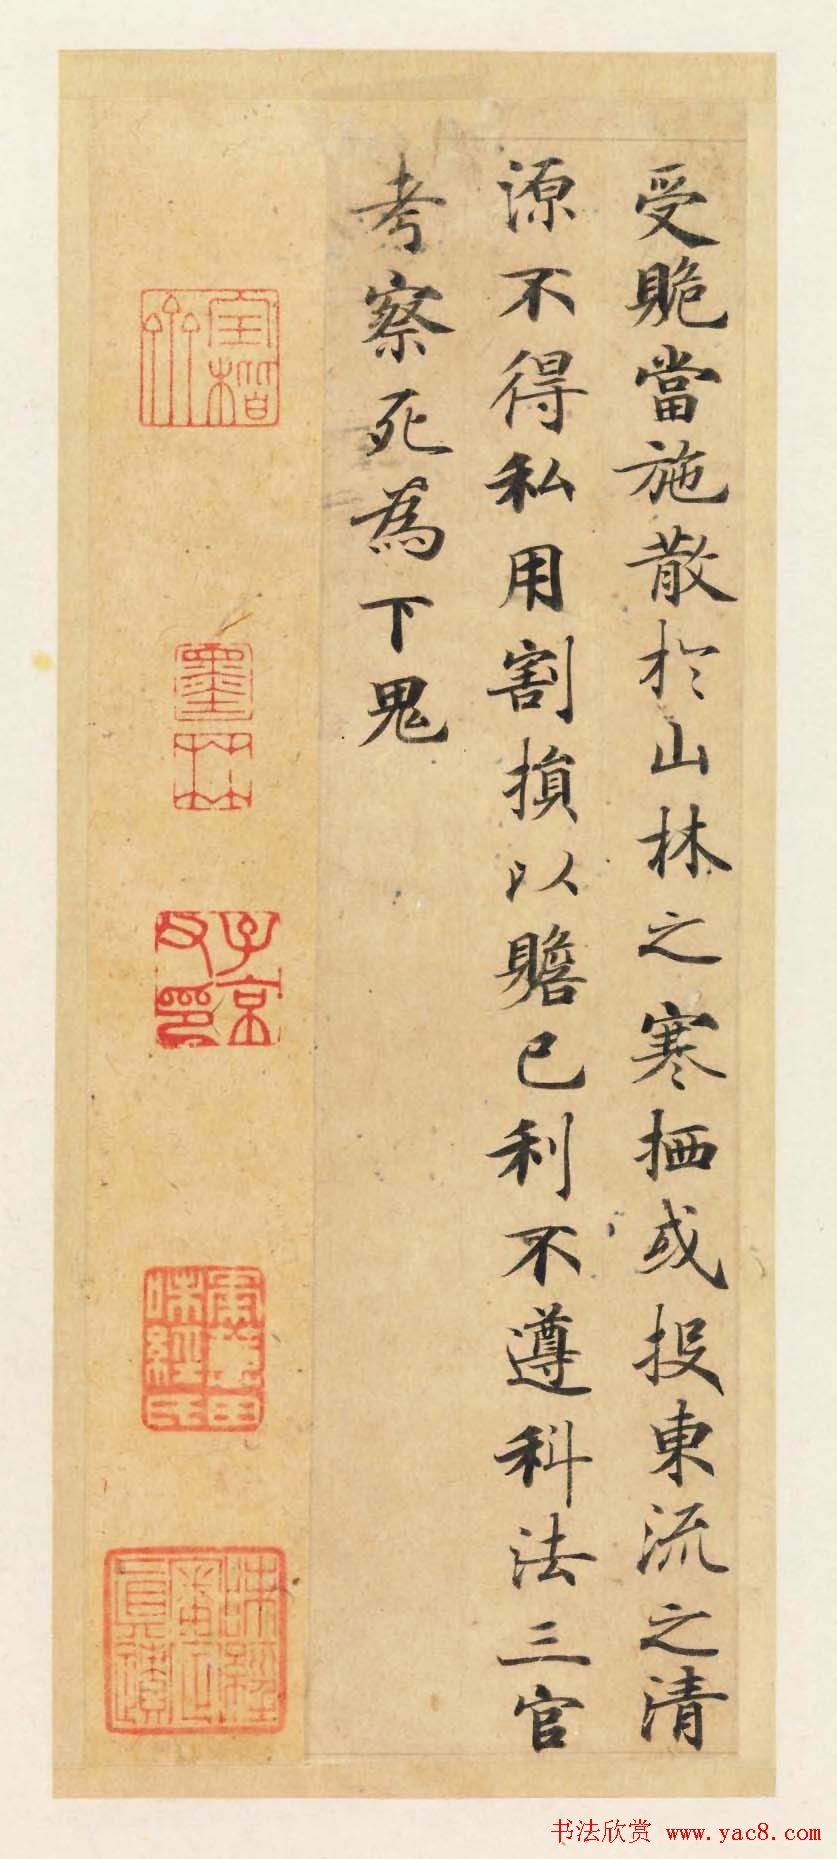 受賂當施散於山林之寒栖或投東流之清
源不得私用割損以贍己利不遵科法三官
考察死為下鬼
墨林
子京父印
書法欣赏 www.yac8.com